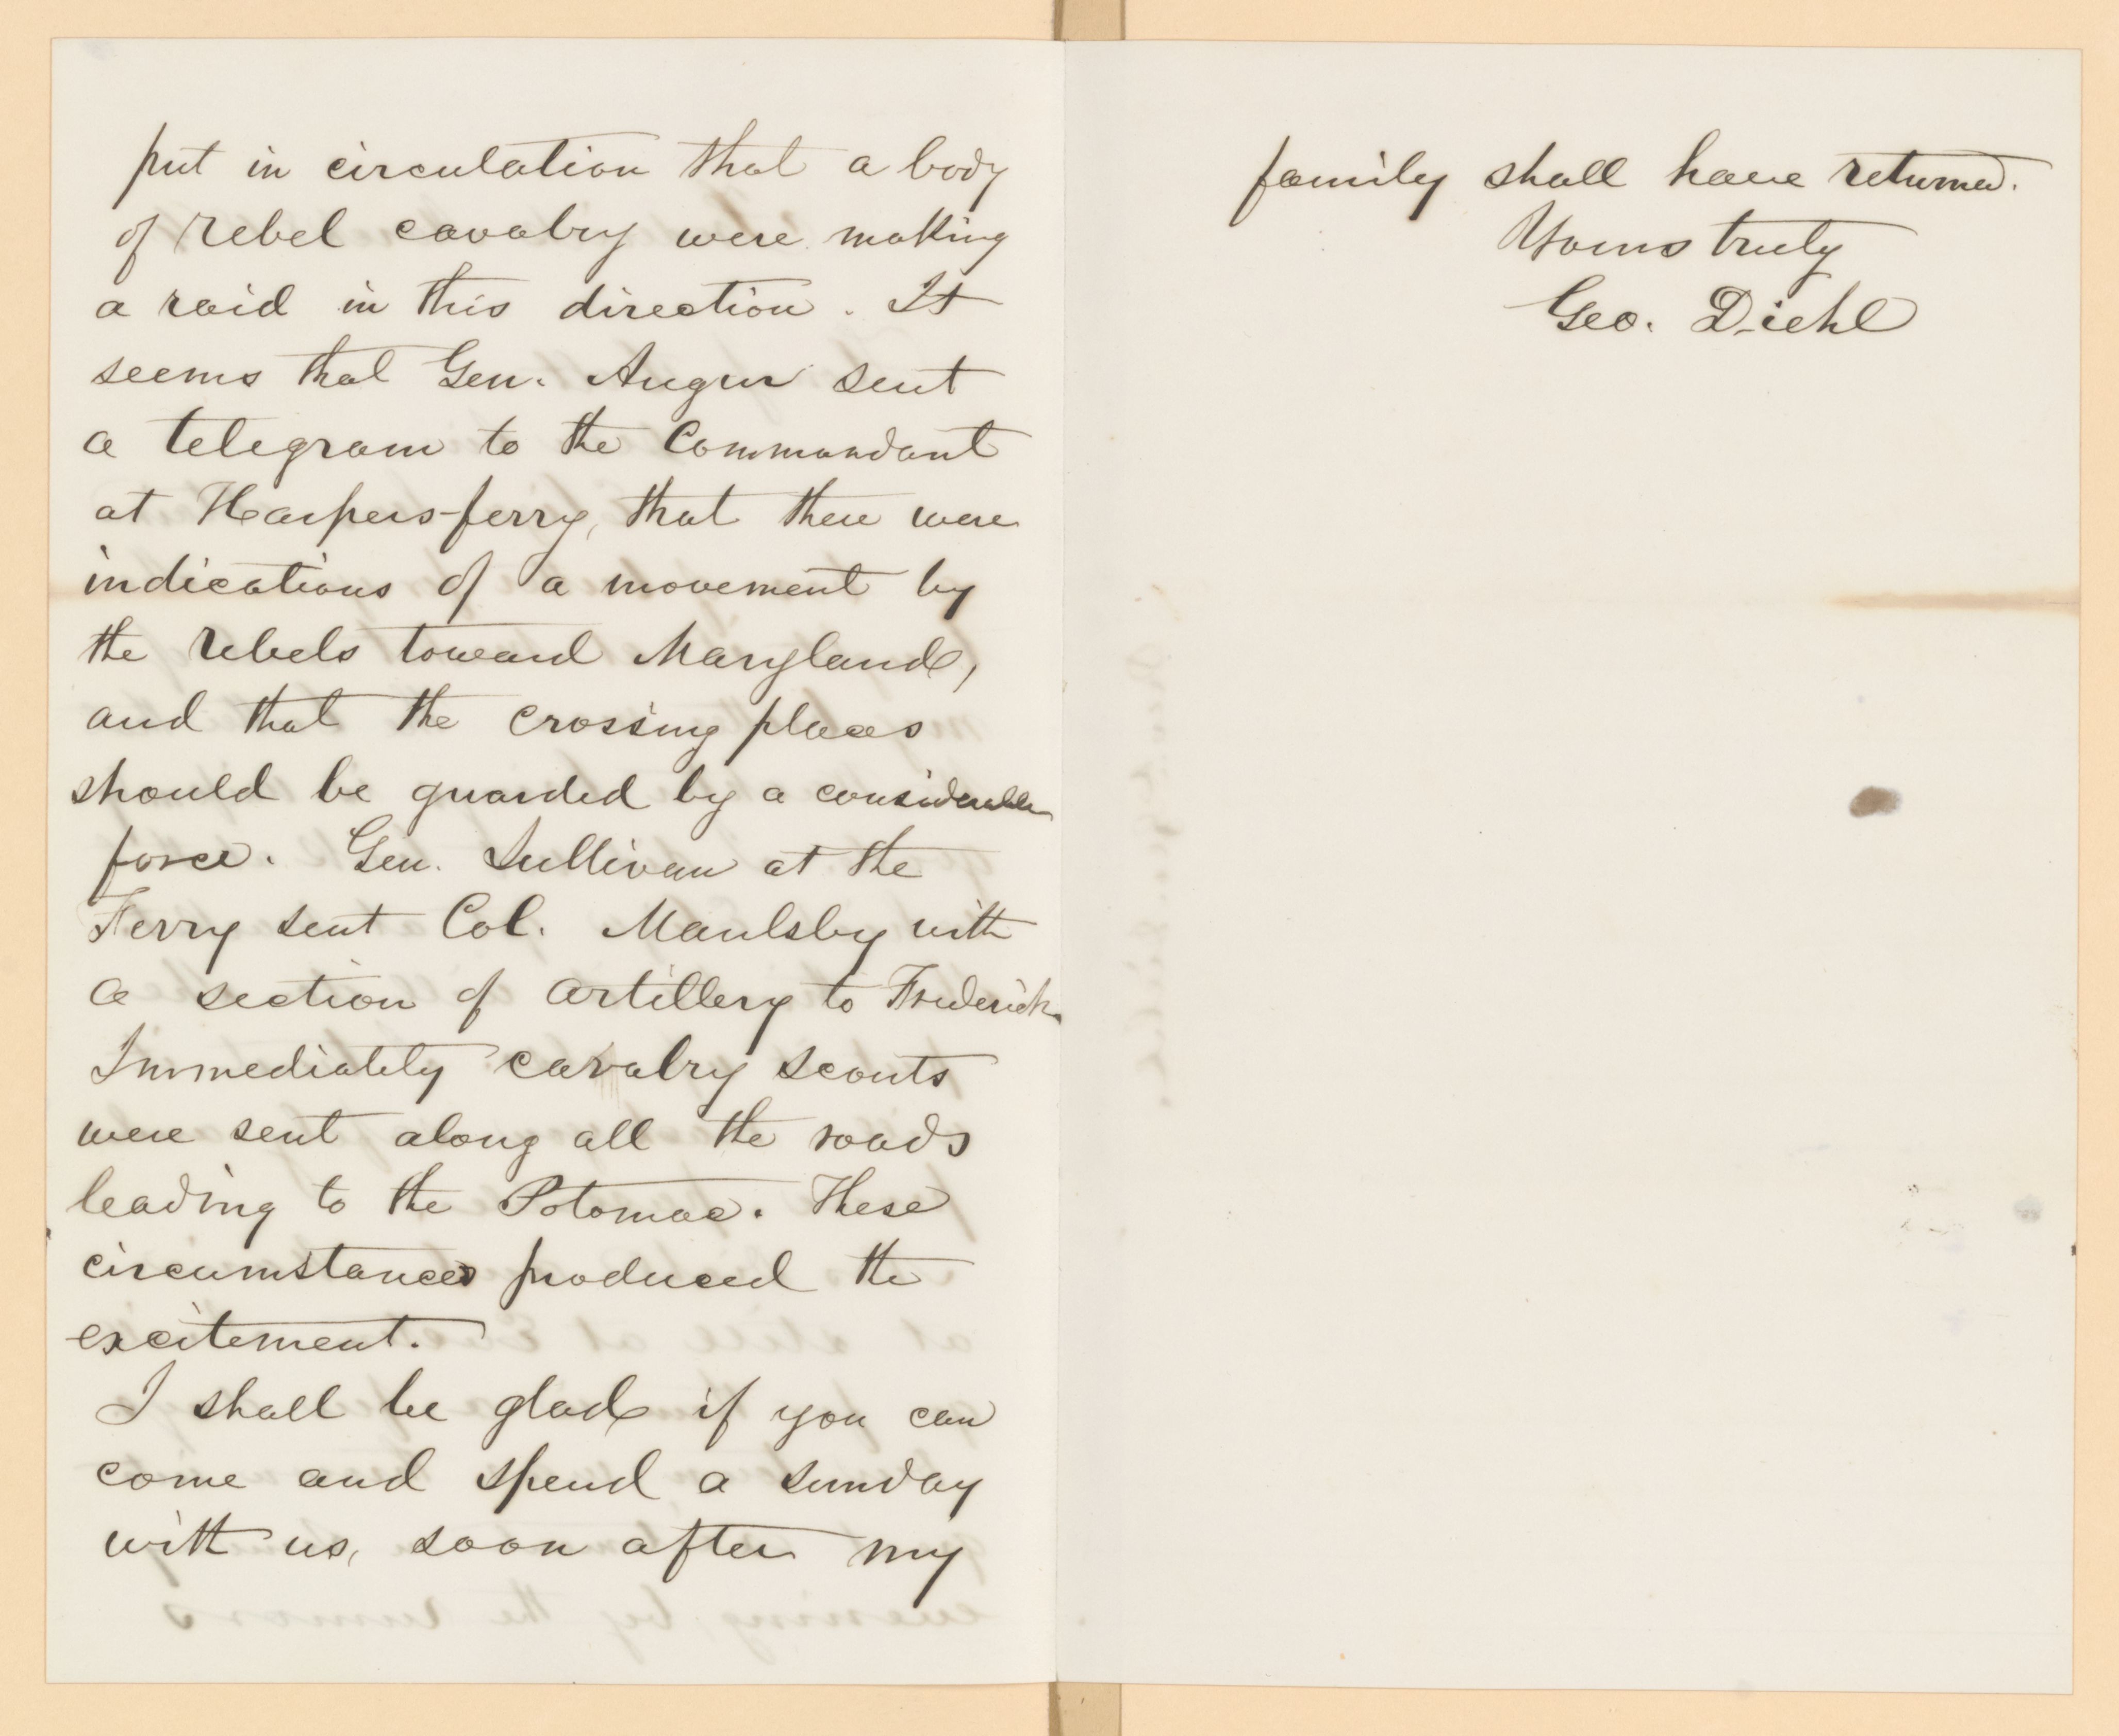 put in circulation that a body
of rebel cavalry were making
a raid in this direction. It
seems that Gen. Augur sent
a telegram to the Commandant
at Harpers-ferry, that there were
indications of a movement by
the rebels toward Maryland,
and that the crossing places
should be guarded by a considerable
force. Gen. Sullivan at the
Ferry sent Col. Maulsby with
a section of artillery to Frederick.
Immediately cavalry scouts
were sent along all the roads
leading to the Potomac. These
circumstances produced the
excitement.
I shall be glad if you can
come and spend a sunday
with us, soon after my
family shall have returned.
Yours truly
Geo. Diehl